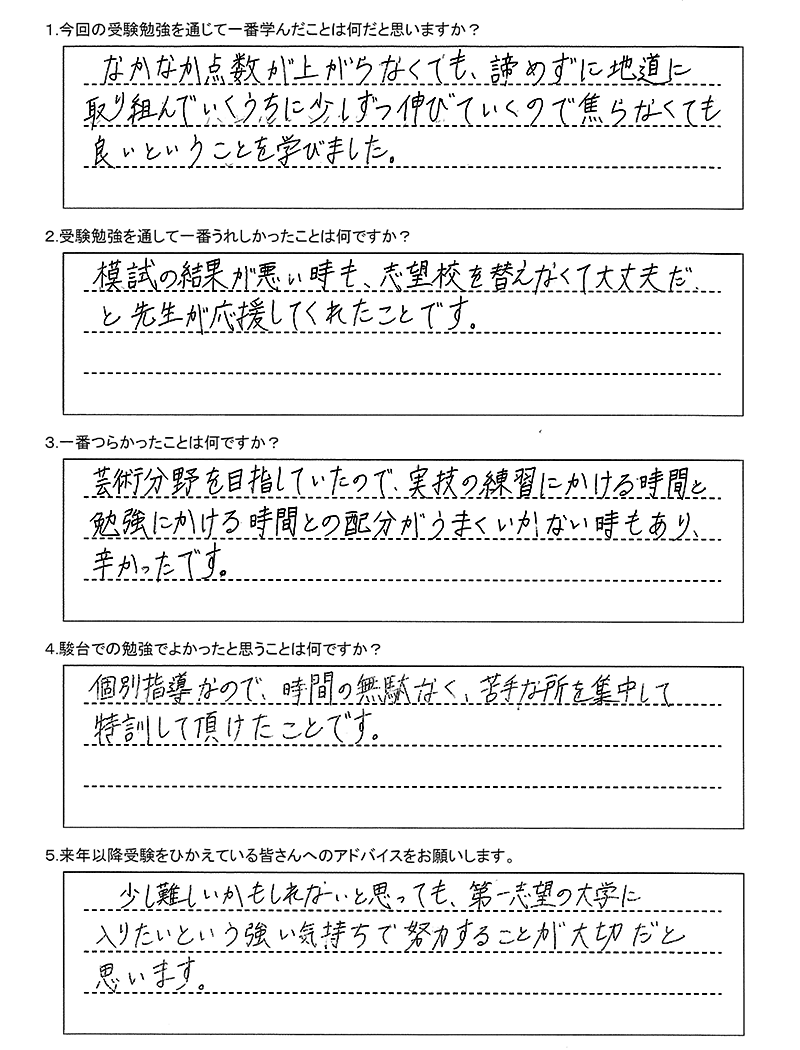 1.今回の受験勉強を通じて一番学んだことは何だと思いますか？
なかなか点数が上がらなくても、諦めずに地道に
取り組んでいくうちに少しずつ伸びていくので焦らなくても
良いということを学びました。
2.受験勉強を通して一番うれしかったことは何ですか？
模試の結果が悪い時も、志望校を替えなくて大丈夫だ
と先生が応援してくれたことです。
3.一番つらかったことは何ですか？
芸術分野を目指していたので、実技の練習にかける時間と
勉強にかける時間との配分がうまくいかない時もあり、
辛かったです。
4.駿台での勉強でよかったと思うことは何ですか？
個別指導なので、時間の無駄なく、苦手な所を集中して
特訓して頂けたことです。
5.来年以降受験をひかえている皆さんへのアドバイスをお願いします。
少し難しいかもしれないと思っても、第一志望の大学に
入りたいという強い気持ちで努力することが大切だと
思います。